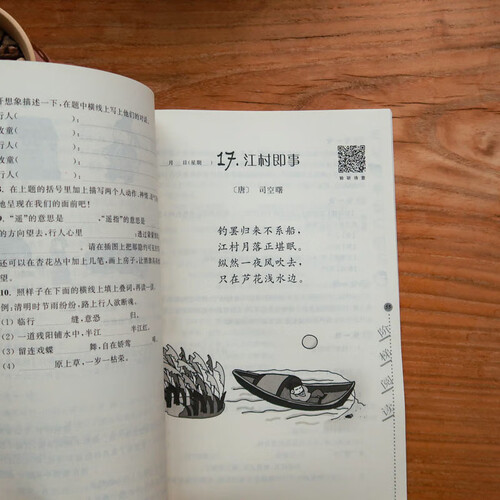 开想象描述一下，在题中横线上写上他们的对话。
行人（　　　　　　）：
牧童（　　　　　　）：
行人（　　　　　　）：
牧童（　　　　　　）：
在上题的括号里加上描写两个人动作、神情、
地呈现在我们的面前吧！
9. “遥”的意思是　　　　，“遥指”的意思是
的方向望去，行人心里　　　　，透过
　　　　。请在插图上把那
还可以在杏花丛中加上几笔，画上房子，让
望。
10. 照样子在下面的横线上填上叠词，再读一读。
例：清明时节雨纷纷，路上行人欲断魂。
（1）临行　　　　缝，意恐　　　　归。
（2）一道残阳铺水中，半江　　　　半江红。
（3）留连戏蝶　　　　舞，自在娇莺　　　　。
（4）　　　　原上草，一岁一枯荣。
月　日（星期　）
17. 江村即事
〔唐〕　司空曙
钓罢归来不系船，
江村月落正堪眠。
纵然一夜风吹去，
只在芦花浅水边。